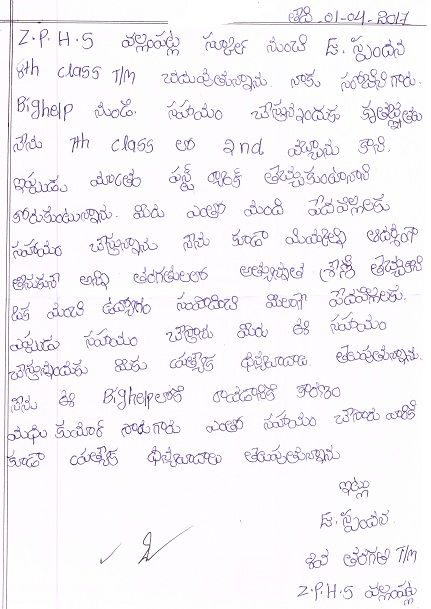 తేది. 01-04-2017
Z.P.H.S వల్లంపట్ల స్కూల్ నుంచి జె. స్పందన
8th class T/M చదువుతున్నాను. నాకు సరోజిని గారు.
Bighelp నుండి. సహాయం చేస్తున్నందుకు కృతజ్ఞతలు
నేను 7th class లో 2nd వచ్చాను కాని.
ఇప్పుడు మాత్రం ఫస్ట్ ర్యాంక్ తెచ్చుకుంటానని
కోరుకుంటున్నాను. మీరు ఎంతో మంది పేదపిల్లలకు
సహాయం చేస్తున్నారు నేను కూడా మిమ్మల్ని ఆదర్శంగా
తీసుకుని అన్ని తరగతులలో అత్యున్నత శ్రేణి తెచ్చుకొని
ఒక మంచి ఉద్యోగం సంపాదించి మీలాగే పేదపిల్లలకు.
ఎప్పుడు సహాయం చేస్తాను మీరు ఈ సహాయం
చేస్తున్నందుకు మీకు ధన్యవాదాలు. తెలుపుతున్నాను.
నేను ఈ Bighelpలోకి రావడానికి కారణం
మధు కుమార్ సారుగారు ఎంతో సహాయం చేసారు వారికి
కూడా ధన్యవాదాలు తెలుపుతున్నాను
ఇట్లు
జె. స్పందన.
8వ తరగతి T/M
Z.P.H.S వల్లంపట్ల